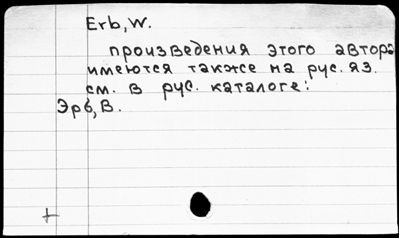 Erb, W.
произведения этого автора
имеются также на рус. яз.
см. в рус. каталоге:
Эрб, В.
+